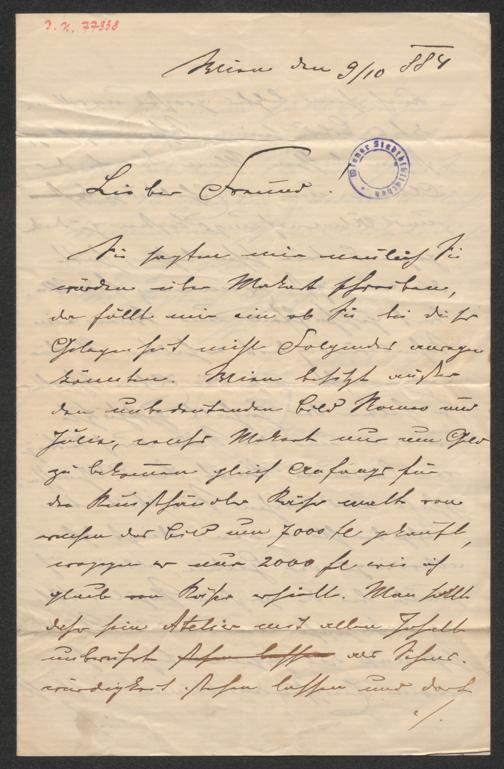 J. N. 77338
Wien den 9/10 884
Wiener Stadtbibliothek
Lieber Freund!
Sie sagten mir neulich Sie
würden über Makart schreiben,
da fällt mir ein ob Sie bei dieser
Gelegenheit nicht Folgendes anregen
könnten. Wien besitzt außer
dem unbedeutenden Bild Romeo und
Julia, welches Makart nur um Geld
zu bekommen gleich Anfangs für
den Kunsthändler Käser malte von
welchem das Bild um 7000 fl gekauft,
wogegen er nur 2000 fl wie ich
glaube von Käser erhielt. Man sollte
daher sein Atelier mit allem Inhalt
unberührt stehen lassen als Sehens-
würdigkeit stehen lassen und dort
./.